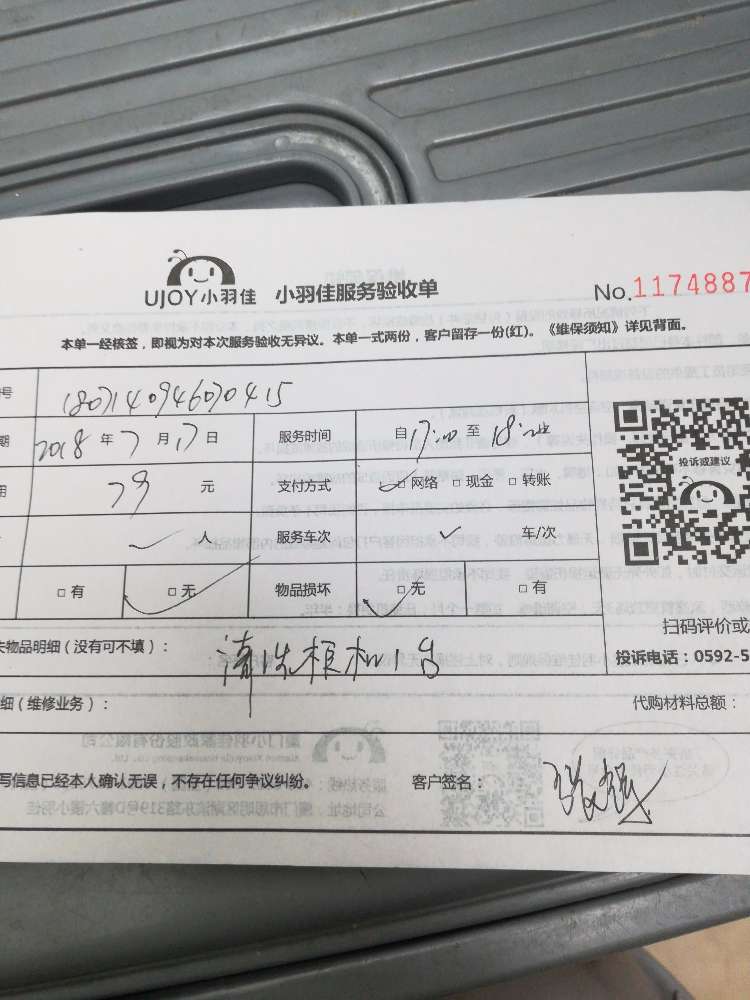 UJOY小羽佳 小羽佳服务验收单 No.1174887
本单一经核签，即视为对本次服务验收无异议。本单一式两份，客户留存一份(红)。《维保须知》详见背面。
号 180714094600415
期 2018 年 7 月 17 日 服务时间 自 17:00 至 18:
用 79 元 支付方式 ✓□网络 □现金 □转账
投诉或建议
✓ 人 服务车次 ✓ 车/次
□有 □无 物品损坏 □无 □有
失物品明细（没有可不填）： 清洗柜机1台
扫码评价或
投诉电话：0592-5
细（维修业务）： 代购材料总额：
写信息已经本人确认无误，不存在任何争议纠纷。 客户签名：